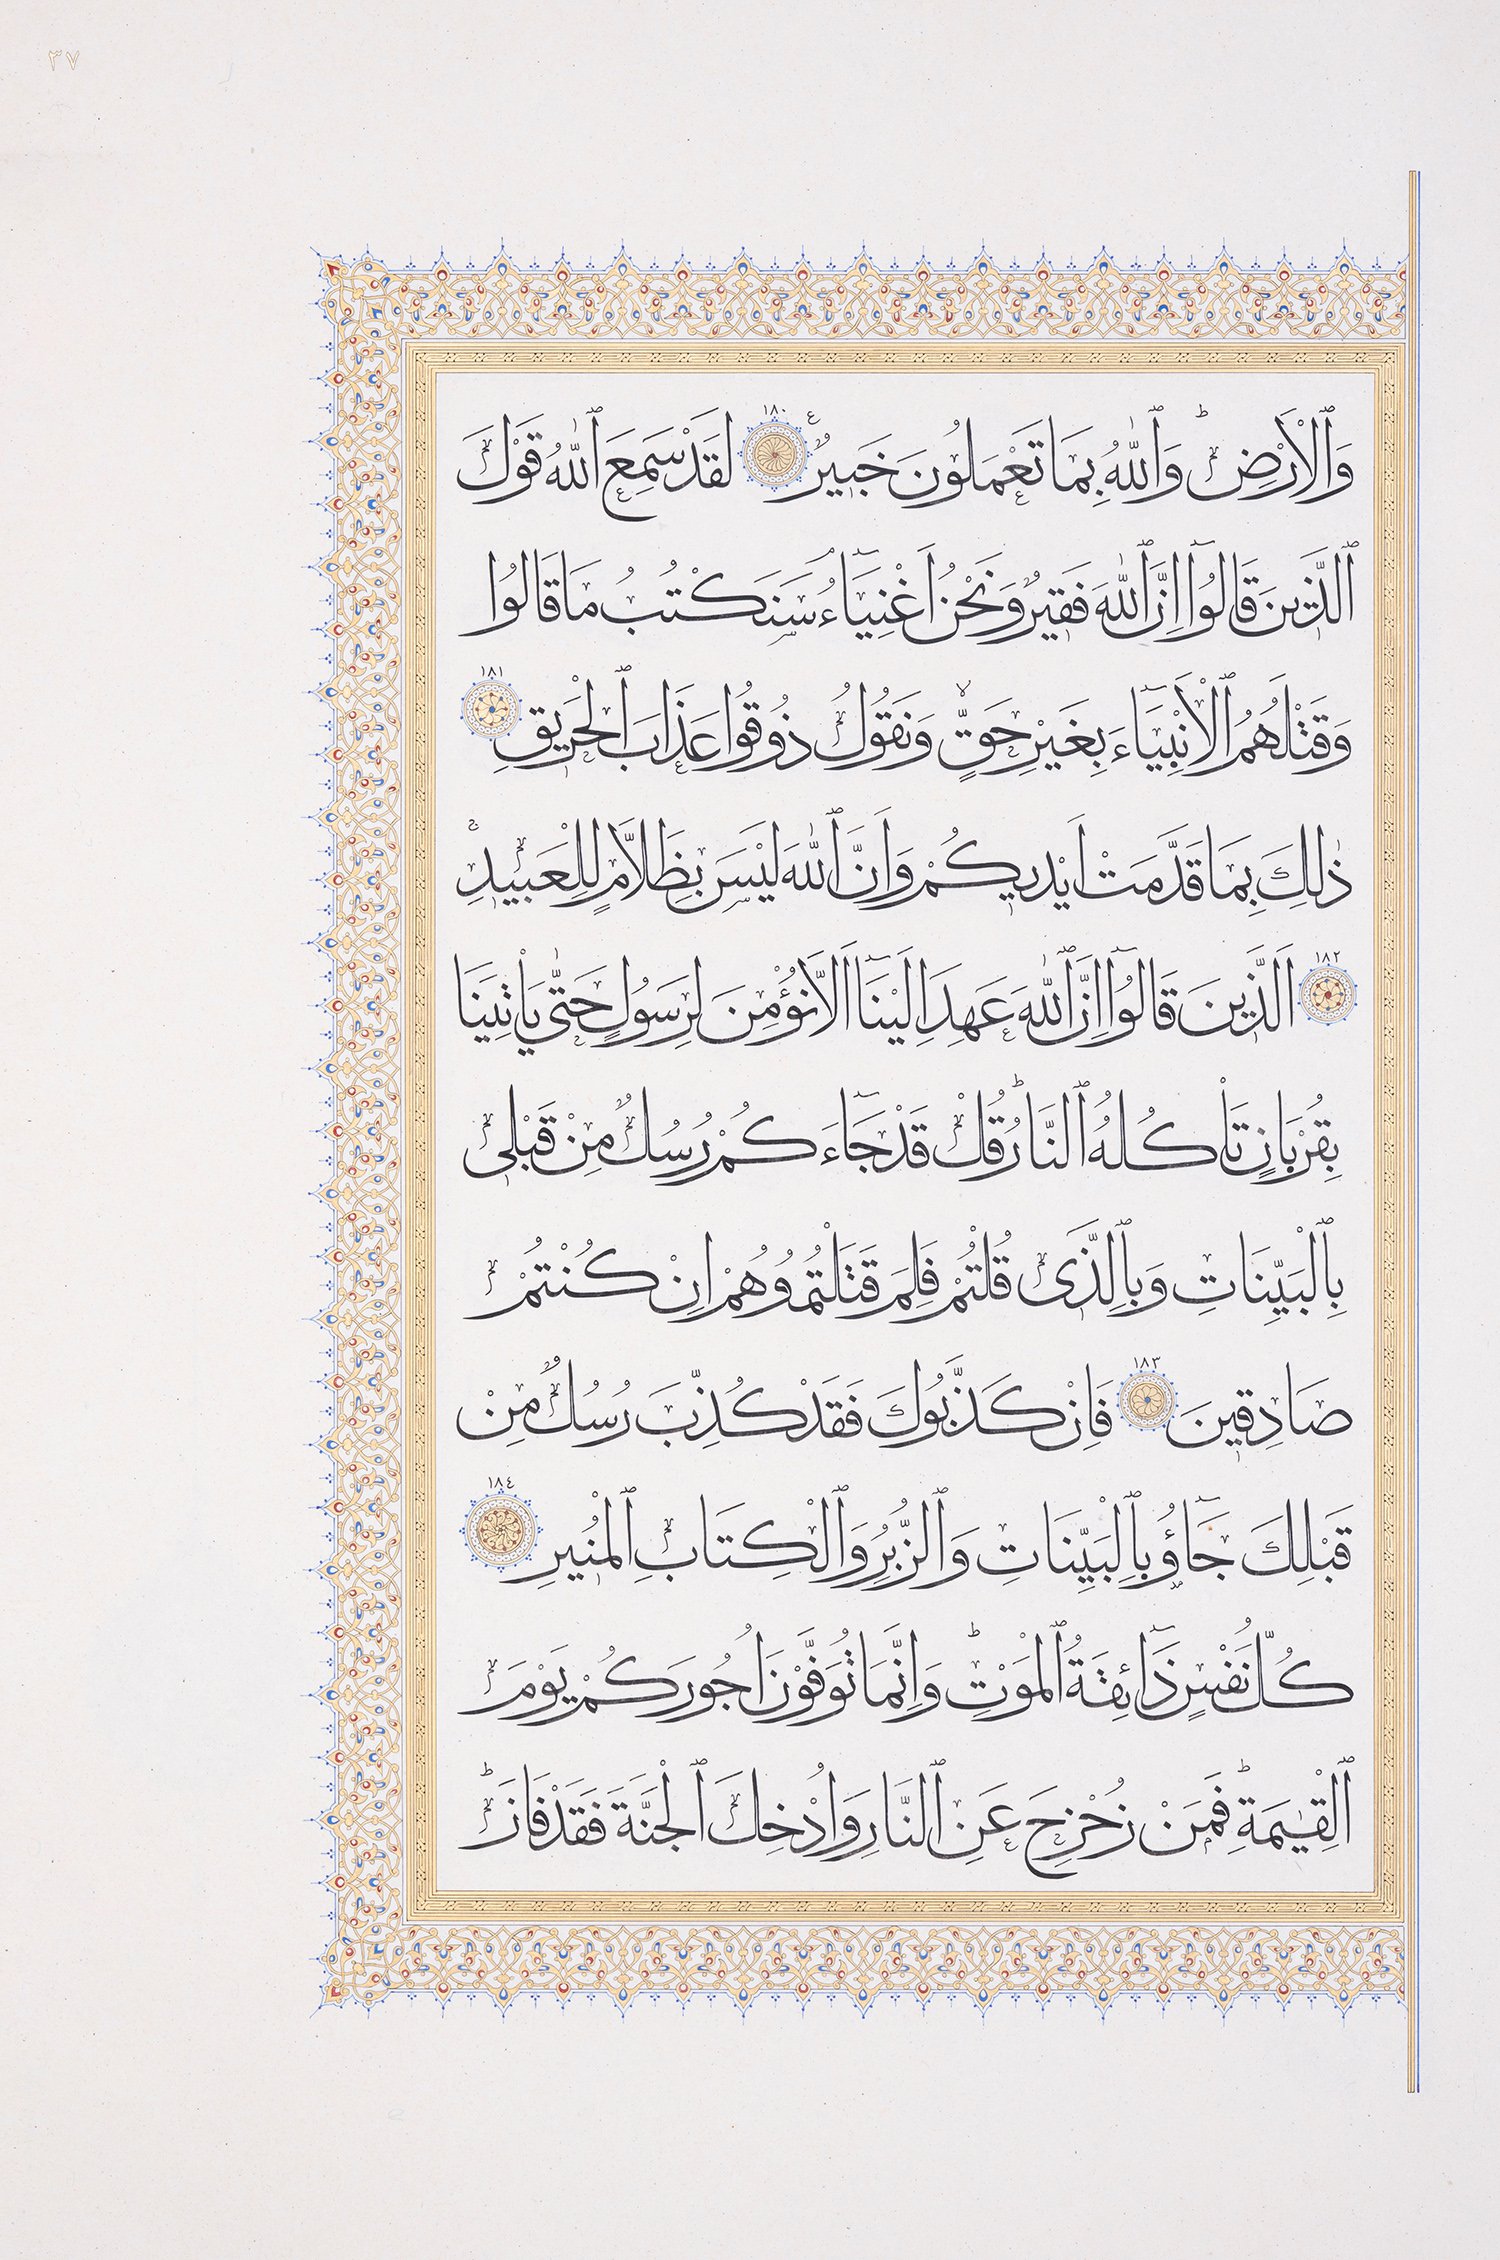 ٣٧
وَٱلْاَرْضِۜ وَٱللّٰهُ بِمَا تَعْمَلُونَ خَبِيرٌ ١٨٠ ع لَقَدْ سَمِعَ ٱللّٰهُ قَوْلَ
ٱلَّذِينَ قَالُٓوا اِنَّ ٱللّٰهَ فَقِيرٌ وَنَحْنُ اَغْنِيَٓاءُ سَنَكْتُبُ مَا قَالُوا
وَقَتْلَهُمُ ٱلْاَنْبِيَٓاءَ بِغَيْرِ حَقٍّ وَنَقُولُ ذُوقُوا عَذَابَ ٱلْحَرِيقِ ١٨١
ذٰلِكَ بِمَا قَدَّمَتْ اَيْدِيكُمْ وَاَنَّ ٱللّٰهَ لَيْسَ بِظَلَّامٍ لِلْعَبِيدِ
١٨٢ اَلَّذِينَ قَالُٓوا اِنَّ ٱللّٰهَ عَهِدَ اِلَيْنَٓا اَلَّا نُؤْمِنَ لِرَسُولٍ حَتّٰى يَأْتِيَنَا
بِقُرْبَانٍ تَأْكُلُهُ ٱلنَّارُ قُلْ قَدْ جَٓاءَكُمْ رُسُلٌ مِنْ قَبْلِى
بِٱلْبَيِّنَاتِ وَبِٱلَّذِى قُلْتُمْ فَلِمَ قَتَلْتُمُوهُمْ اِنْ كُنْتُمْ
صَادِقِينَ ١٨٣ فَاِنْ كَذَّبُوكَ فَقَدْ كُذِّبَ رُسُلٌ مِنْ
قَبْلِكَ جَٓاؤُ بِٱلْبَيِّنَاتِ وَٱلزُّبُرِ وَٱلْكِتَابِ ٱلْمُنِيرِ ١٨٤
كُلُّ نَفْسٍ ذَٓائِقَةُ ٱلْمَوْتِ وَاِنَّمَا تُوَفَّوْنَ اُجُورَكُمْ يَوْمَ
ٱلْقِيٰمَةِ فَمَنْ زُحْزِحَ عَنِ ٱلنَّارِ وَاُدْخِلَ ٱلْجَنَّةَ فَقَدْ فَازَ